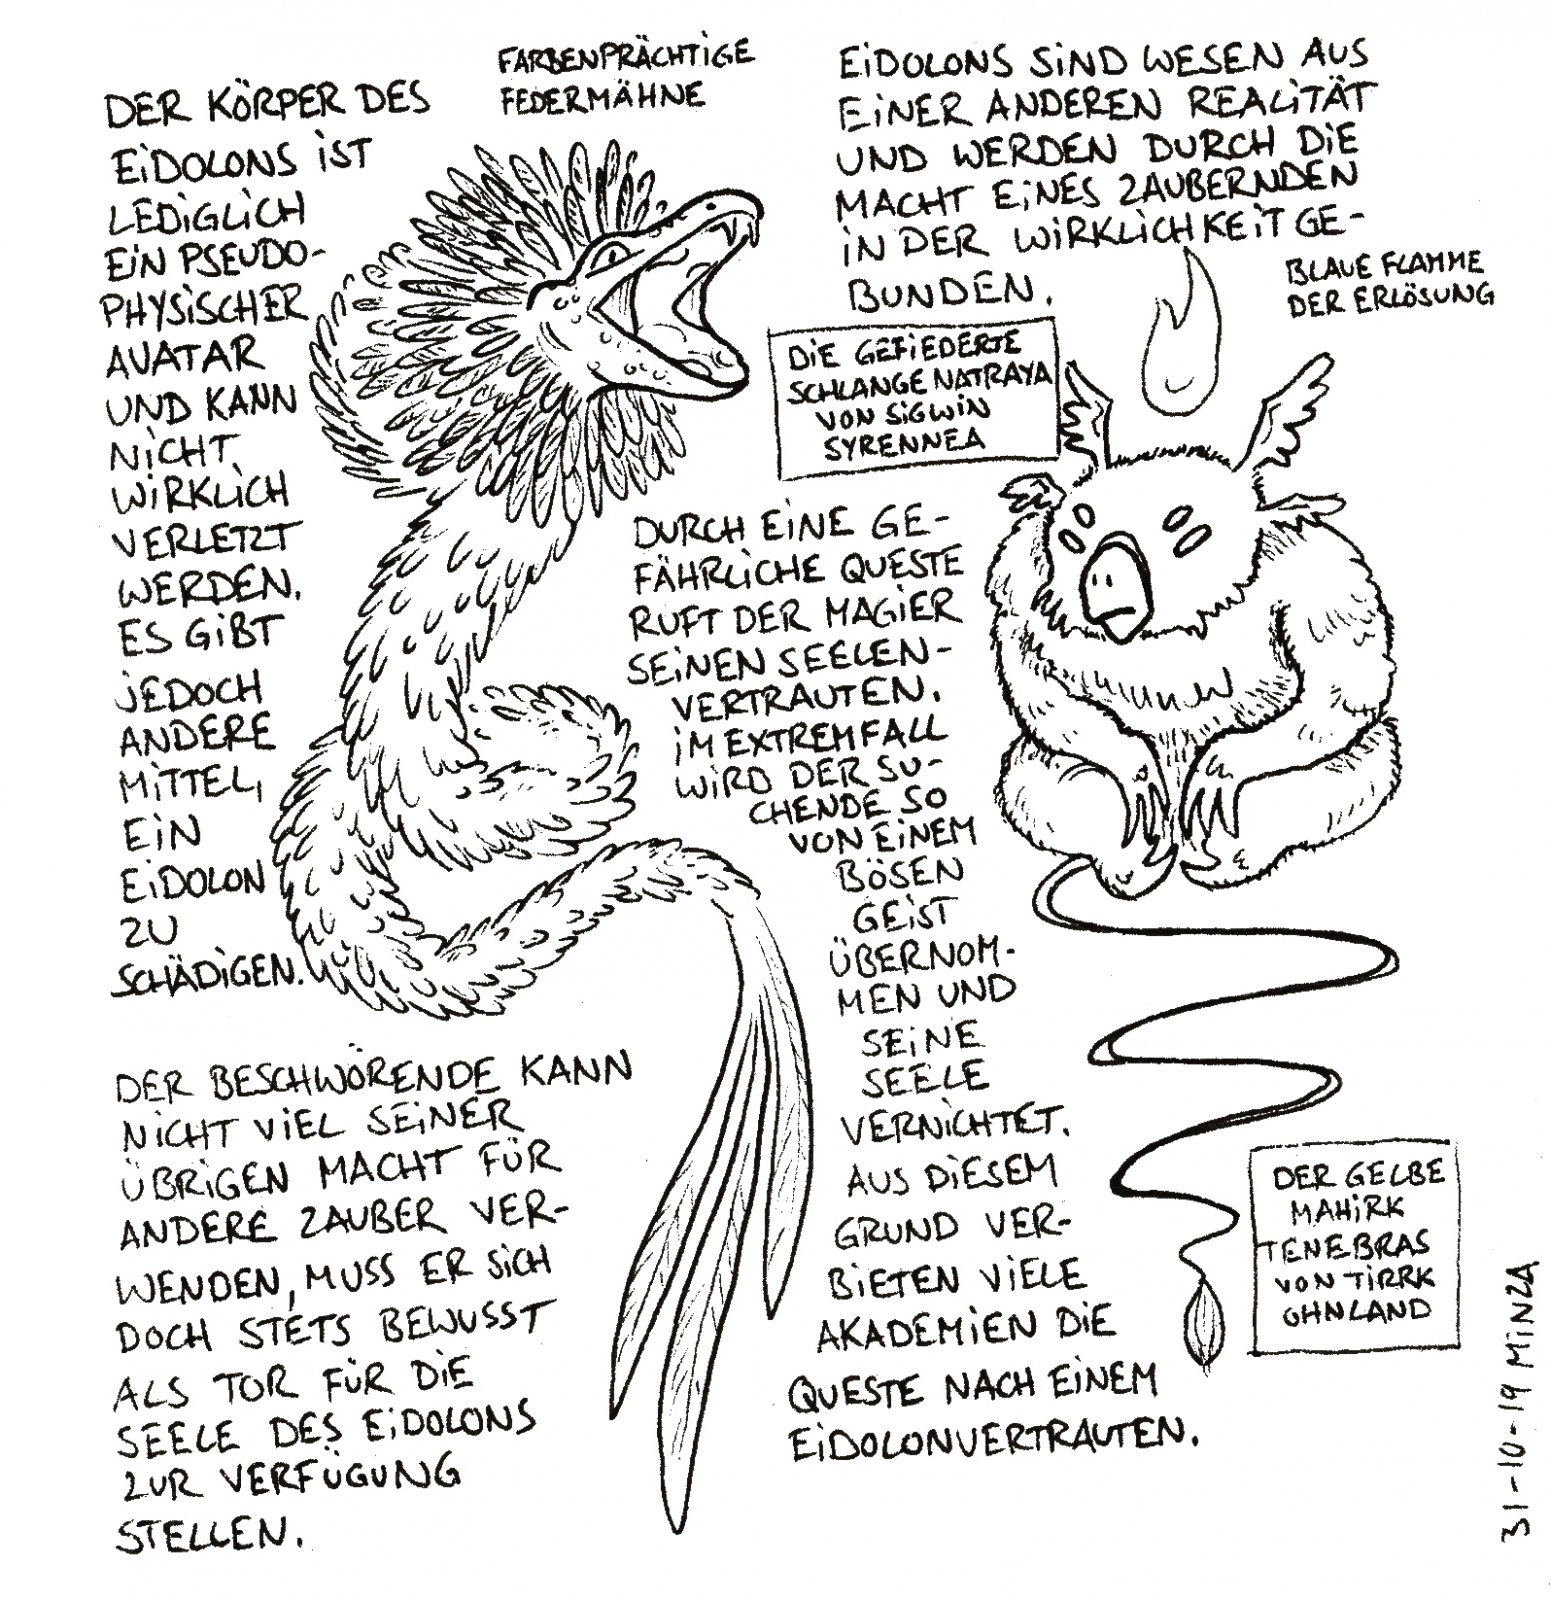 FARBENPRÄCHTIGE
FEDERMÄHNE
DER KÖRPER DES
EIDOLONS IST
LEDIGLICH
EIN PSEUDO-
PHYSISCHER
AVATAR
UND KANN
NICHT
WIRKLICH
VERLETZT
WERDEN.
ES GIBT
JEDOCH
ANDERE
MITTEL,
EIN
EIDOLON
ZU
SCHÄDIGEN.
DER BESCHWÖRENDE KANN
NICHT VIEL SEINER
ÜBRIGEN MACHT FÜR
ANDERE ZAUBER VER-
WENDEN, MUSS ER SICH
DOCH STETS BEWUSST
ALS TOR FÜR DIE
SEELE DES EIDOLONS
ZUR VERFÜGUNG
STELLEN.
EIDOLONS SIND WESEN AUS
EINER ANDEREN REALITÄT
UND WERDEN DURCH DIE
MACHT EINES ZAUBERNDEN
IN DER WIRKLICHKEIT GE-
BUNDEN.
BLAUE FLAMME
DER ERLÖSUNG
DIE GEFIEDERTE
SCHLANGE NATRAYA
VON SIGWIN
SYRENNEA
DURCH EINE GE-
FÄHRLICHE QUESTE
RUFT DER MAGIER
SEINEN SEELEN-
VERTRAUTEN.
IM EXTREMFALL
WIRD DER SU-
CHENDE SO
VON EINEM
BÖSEN
GEIST
ÜBERNOM-
MEN UND
SEINE
SEELE
VERNICHTET.
AUS DIESEM
GRUND VER-
BIETEN VIELE
AKADEMIEN DIE
QUESTE NACH EINEM
EIDOLONVERTRAUTEN.
DER GELBE
MAHIRK
TENEBRAS
VON TIRRK
OHNLAND
31-10-19 MINZA